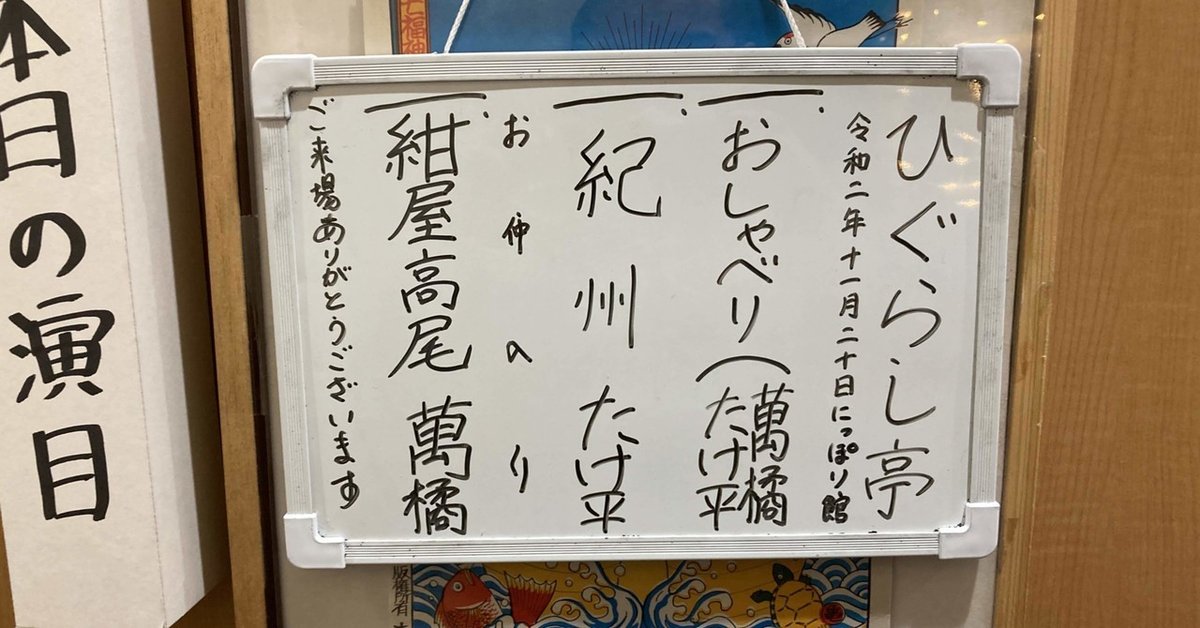 ひぐらし亭
令和二年十一月二十日にっぽり館
一、おしゃべり（萬橘
たけ平
一、紀州 たけ平
お仲入り
一、紺屋高尾 萬橘
ご来場ありがとうございます
本日の演目
七福神
版権所有